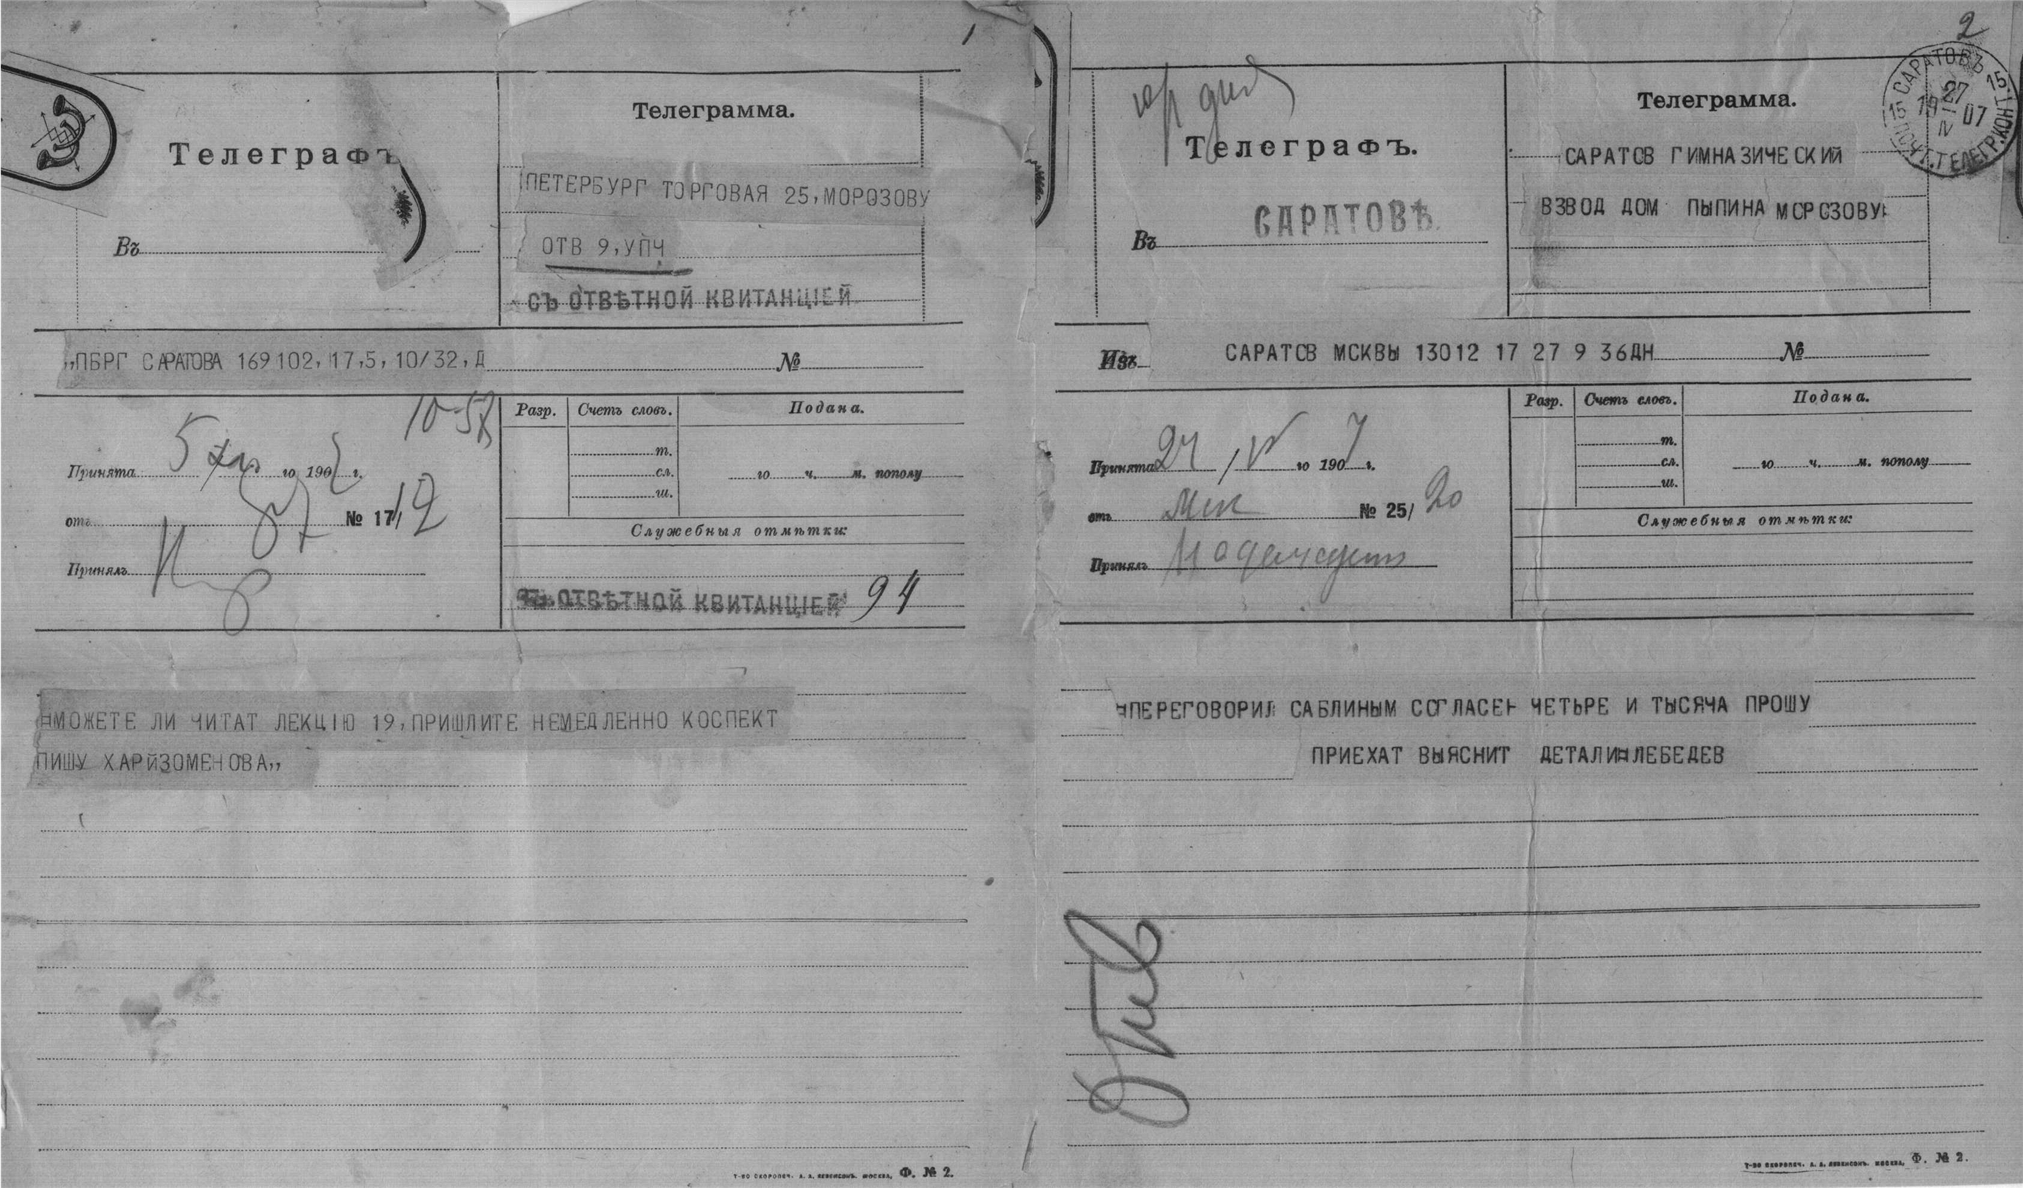 1
Телеграфъ
Въ
Телеграмма.
ПЕТЕРБУРГ ТОРГОВАЯ 25,МОРОЗОВУ
ОТВ 9,УПЧ
СЪ ОТВѢТНОЙ КВИТАНЦІЕЙ
„ПБРГ САРАТОВА 169102,17,5,10/32,Д №
10-58
Принята 5 го 190 г.
отъ № 17/ 12
Принялъ
Разр. Счетъ словъ. Подана.
т.
сл. го ч. м. пополу
ш.
Служебныя отмѣтки:
СЪ ОТВѢТНОЙ КВИТАНЦІЕЙ 94
=МОЖЕТЕ ЛИ ЧИТАТ ЛЕКЦІЮ 19,ПРИШЛИТЕ НЕМЕДЛЕННО КОСПЕКТ
ПИШУ ХАРЙЗОМЕНОВА„
Т-во скоропеч. А. А. Левенсонъ. Москва. Ф. № 2.
2
Телеграфъ.
Въ САРАТОВѢ.
Телеграмма.
САРАТОВЪ 27 IV 07 ПОЧТ.ТЕЛЕГР.КОНТ.
САРАТОВ ГИМНАЗИЧЕСКИЙ
ВЗВОД ДОМ ПЫПИНА МОРОЗОВУ
Изъ САРАТОВ МСКВЫ 13012 17 27 9 36ДН №
Принята 27/IV го 1907 г.
отъ Мск № 25/ 20
Принялъ
Разр. Счетъ словъ. Подана.
т.
сл. го ч. м. пополу
ш.
Служебныя отмѣтки:
=ПЕРЕГОВОРИЛ САБЛИНЫМ СОГЛАСЕН ЧЕТЬРЕ И ТЫСЯЧА ПРОШУ
ПРИЕХАТ ВЫЯСНИТ ДЕТАЛИ=ЛЕБЕДЕВ
Т-во скоропеч. А. А. Левенсонъ. Москва. Ф. № 2.